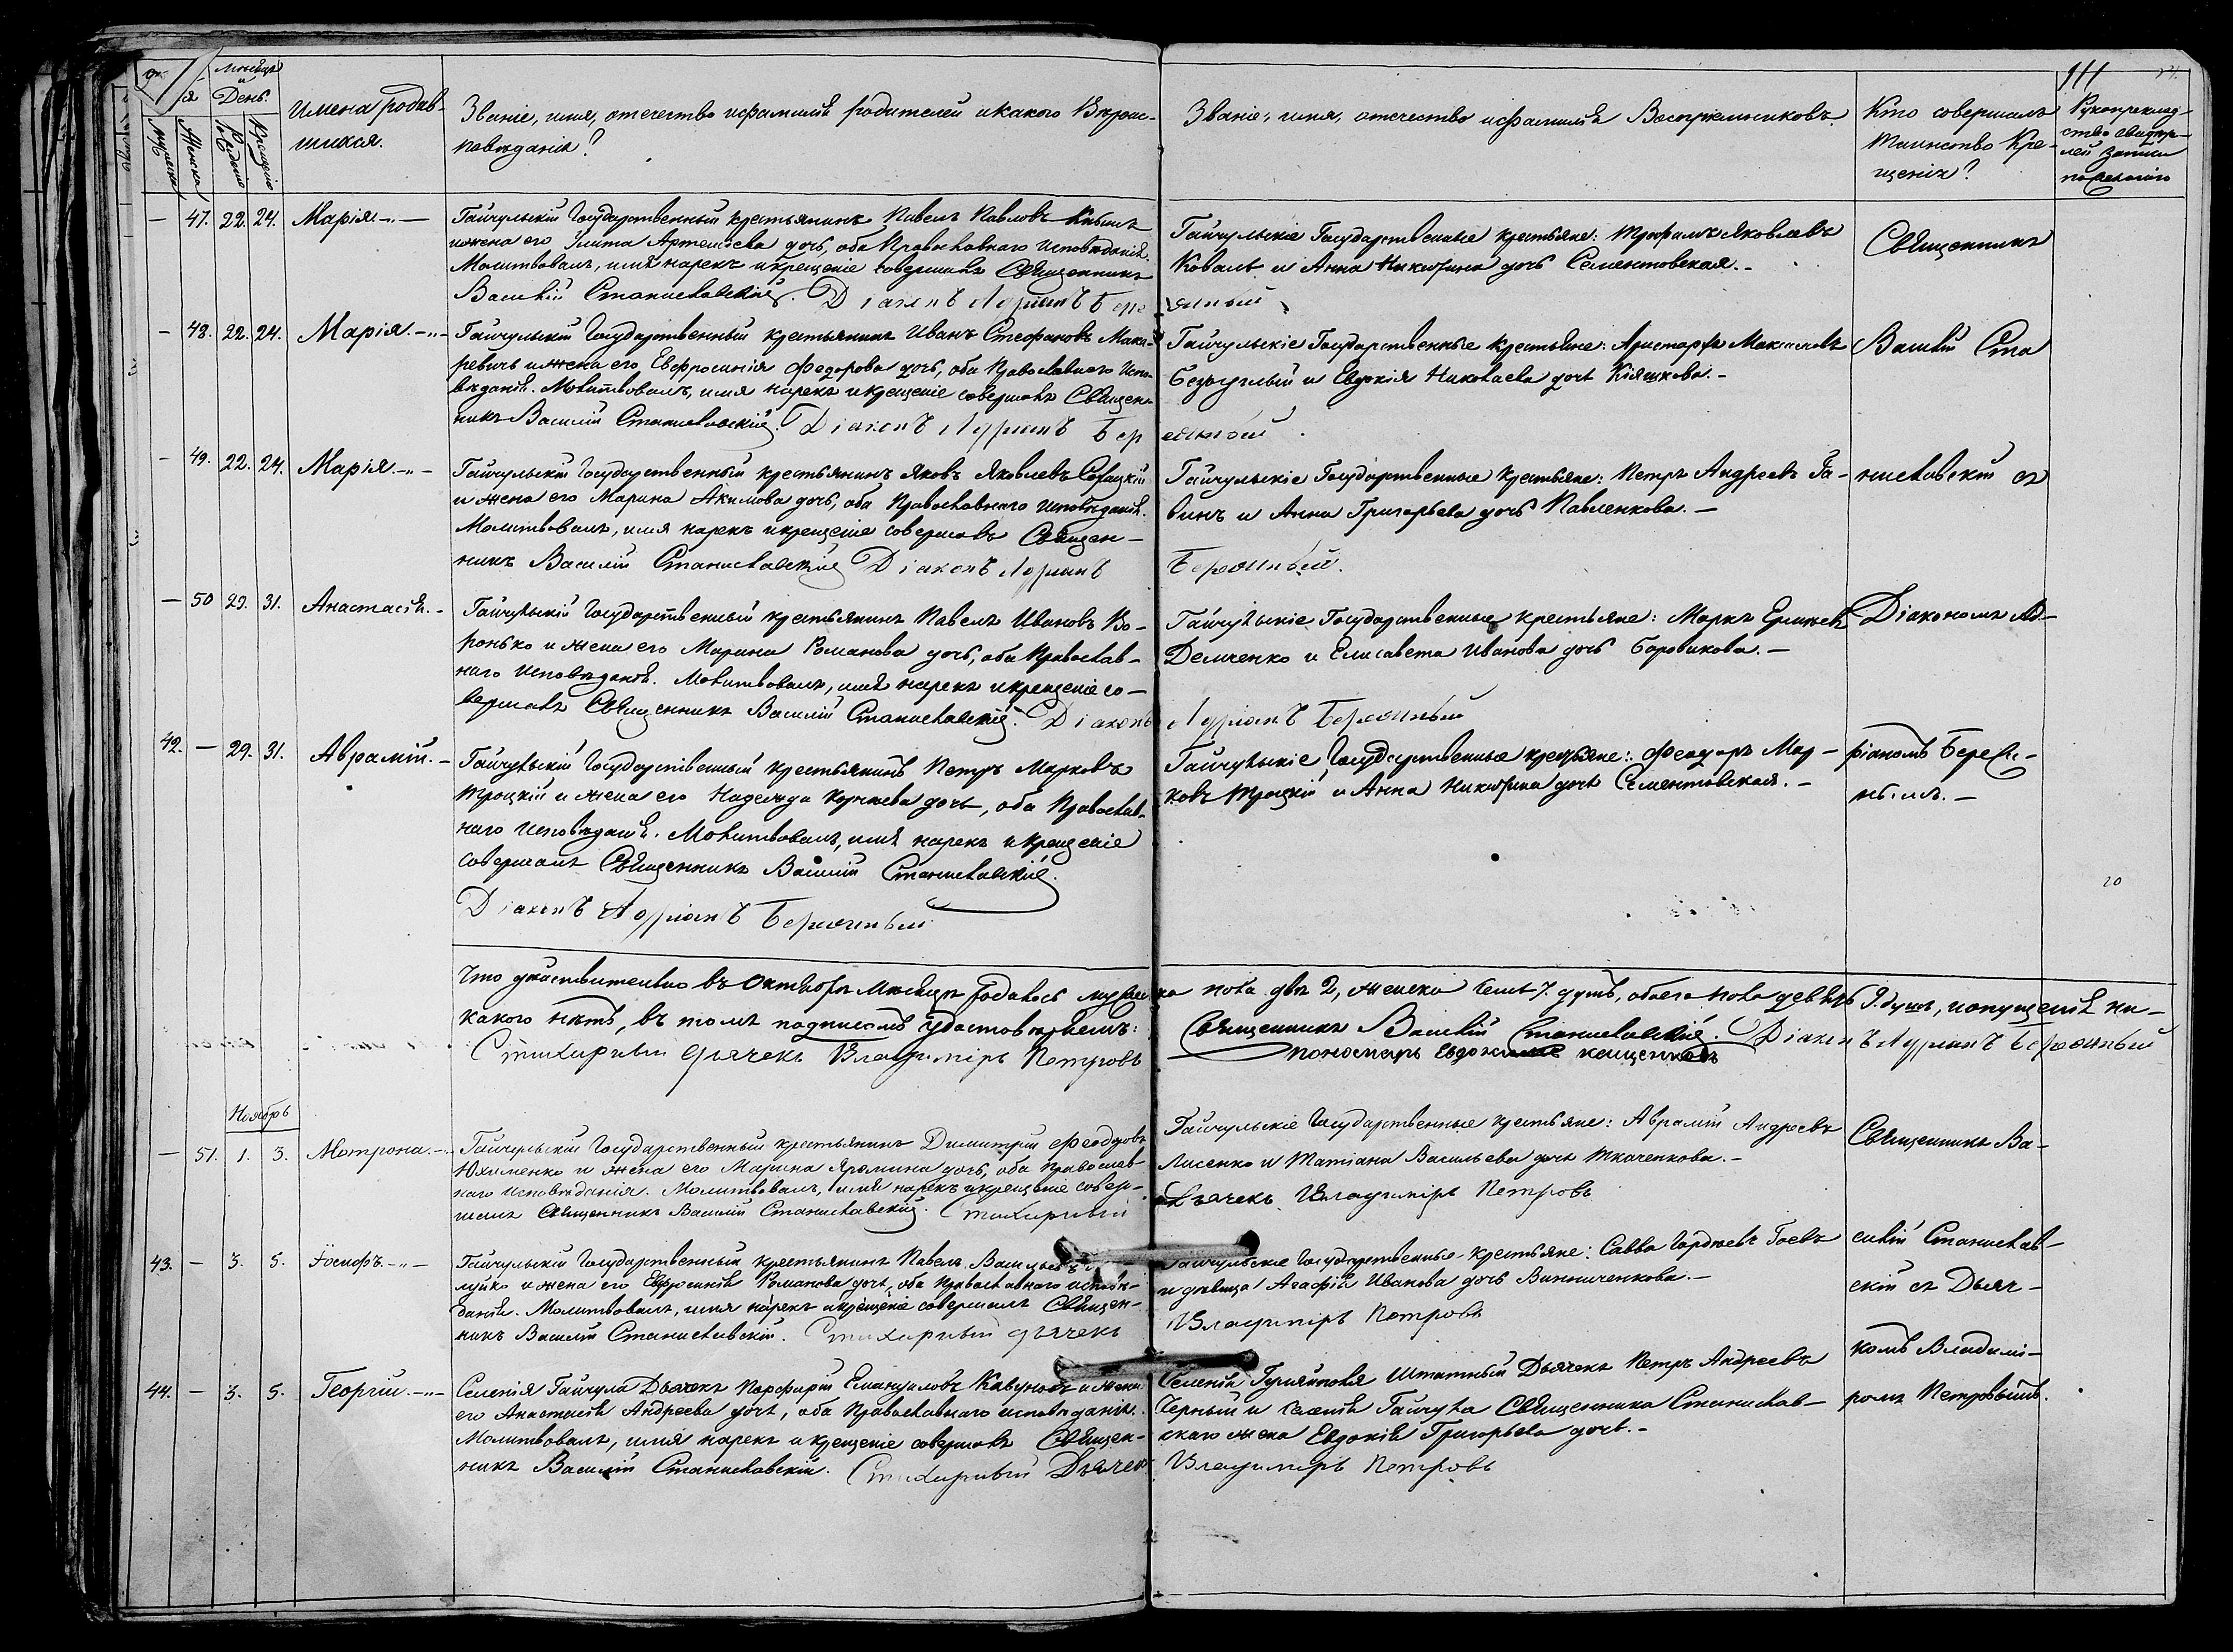 111
Мѣсяцъ
и
День.
Мужеска
Женска
Рожденія
Крещенія
Имена родив-
шихся.
Званіе, имя, отечество и фамилія родителей и какого Вѣроис-
повѣданія?
Званіе, имя, отечество и фамилія Воспріемниковъ.
Кто совершалъ
Таинство Кре-
щенія?
Рукоприклад-
ство свидѣте-
лей записи
по желанію
— 47. 22. 24. Марія. —
Гайчульскій Государственный крестьянинъ Павелъ Павловъ
и жена его Улита Артемова дочь, оба Православнаго исповѣданія.
Молитвовалъ, имя нарекъ и крещеніе совершалъ Священникъ
Василій Станиславскій. Діаконъ Адріанъ Бере
Гайчульскіе Государственные крестьяне: Трофимъ Яковлевъ
Коваль и Анна Никитина дочь Сементовская. —
Священникъ
— 48. 22. 24. Марія. —
Гайчульскій Государственный крестьянинъ Иванъ Стефановъ Мака-
ревичь и жена его Евфросинія Федорова дочь, оба Православнаго Испо-
вѣданія. Молитвовалъ, имя нарекъ и крещеніе совершалъ Священ-
никъ Василій Станиславскій. Діаконъ Адріанъ Бер
Гайчульскіе Государственные крестьяне: Аристархъ Максимовъ
Безуглый и Евдокія Николаева дочь Кіяшкова. —
Василій Ста
— 49. 22. 24. Марія. —
Гайчульскій Государственный крестьянинъ Яковъ Яковлевъ
и жена его Марина Акимова дочь, оба Православнаго исповѣданія.
Молитвовалъ, имя нарекъ и крещеніе совершалъ Священ-
никъ Василій Станиславскій Діаконъ Адріанъ
Гайчульскіе Государственные крестьяне: Петръ Андреевъ Га-
винъ и Анна Григорьева дочь Павленкова. —
ниславскій съ
— 50 29. 31. Анастасія. —
Гайчульскій Государственный крестьянинъ Павелъ Ивановъ Во-
ронько и жена его Марина Романова дочь, оба Православ-
наго исповѣданія. Молитвовалъ, имя нарекъ и крещеніе со-
вершалъ Священникъ Василій Станиславскій. Діаконъ
Адріанъ
Гайчульскіе Государственные крестьяне: Маркъ
Демченко и Елисавета Иванова дочь Боровикова. —
Діакономъ Ад-
42. — 29. 31. Аврамій. —
Гайчульскій Государственный крестьянинъ Петръ Марковъ
Троцкій и жена его Надежда Корнѣева дочь, оба Православ-
наго исповѣданія. Молитвовалъ, имя нарекъ и крещеніе
совершалъ Священникъ Василій Станиславскій.
Діаконъ Адріанъ
Гайчульскіе Государственные крестьяне: Феодоръ Мар-
ковъ Троцкій и Анна Никитина дочь Сементовская. —
ріаномъ
Что дѣйствительно въ Октябрѣ Мѣсяцѣ родилось мужеска пола двѣ 2, женска семь 7. душъ, обоего пола девять 9. душъ, и опущенія ни-
какого нѣтъ, въ томъ подписомъ удостовѣряемъ: Священникъ Василій Станиславскій. Діаконъ Адріанъ
Стихирный дьячекъ Владимиръ Петровъ
пономарь Евдокимъ
Ноябрь
— 51. 1. 3. Мотрона. —
Гайчульскій Государственный крестьянинъ Димитрій Феодоровъ
Юхименко и жена его Марина дочь, оба Православ-
наго исповѣданія. Молитвовалъ, имя нарекъ и крещеніе совер-
шалъ Священникъ Василій Станиславскій. Стихирный
Дьячекъ Владимиръ Петровъ
Гайчульскіе Государственные крестьяне: Аврамій Андреевъ
Лисенко и Татіана Васильева дочь Ткаченкова. —
Священникъ Ва-
43. — 3. 5. Іосифъ. —
Гайчульскій Государственный крестьянинъ Павелъ Васильевъ
и жена его Евфросинія Романова дочь, оба Православнаго исповѣ-
данія. Молитвовалъ, имя нарекъ и крещеніе совершалъ Священ-
никъ Василій Станиславскій. Стихирный дьячекъ
Владимиръ Петровъ
Гайчульскіе Государственные крестьяне: Савва Гордѣевъ Гаевъ
и дѣвица Агафія Иванова дочь Винниченкова. —
силій Станислав-
скій съ Дьяч-
44. — 3. 5. Георгій. —
Селенія Гайчула Дьячекъ Порфирій Емануиловъ Кавуновъ и жена
его Анастасія Андреева дочь, оба Православнаго исповѣданія.
Молитвовалъ, имя нарекъ и крещеніе совершалъ Священ-
никъ Василій Станиславскій. Стихирный Дьячекъ
Владимиръ Петровъ
Селенія Штатный Дьячекъ Петръ Андреевъ
Черный и селенія Гайчула Священника Станислав-
скаго жена Евдокія Григорьева дочь. —
комъ Владимі-
ромъ Петровымъ.